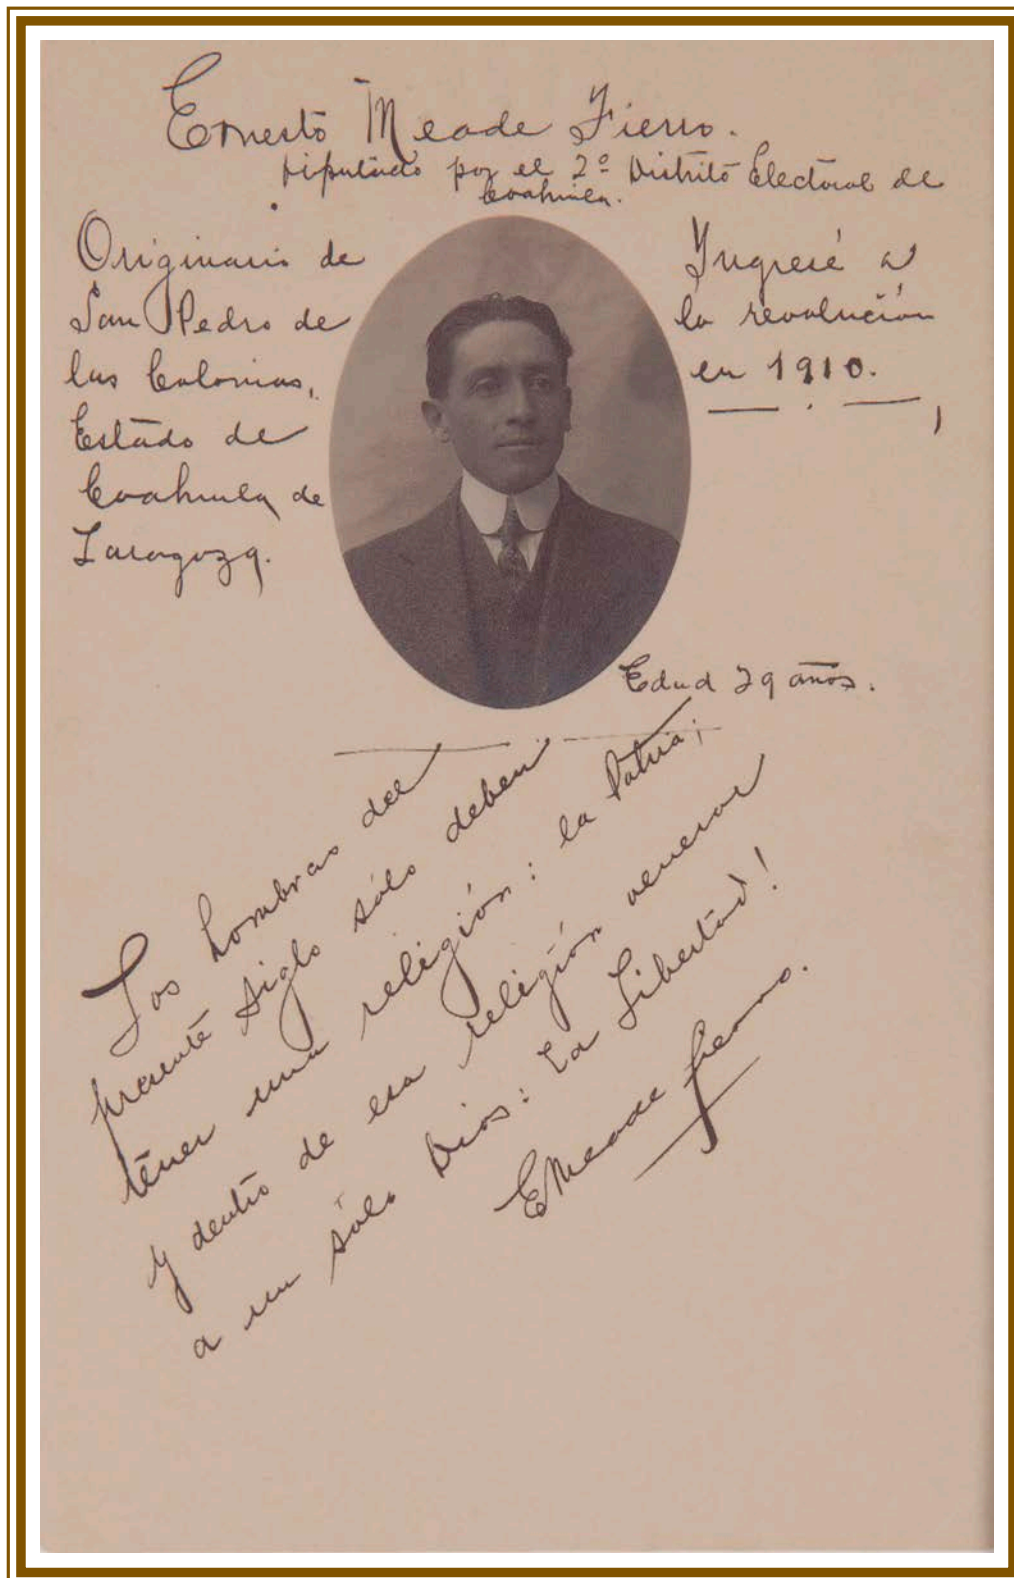 Ernesto Meade Fierro.
Diputado por el 2º Distrito Electoral de
Coahuila.
Originario de
San Pedro de
las Colonias,
Estado de
Coahuila de
Zaragoza.
Ingresé a
la revolución
en 1910.
Edad 29 años.
Los hombres del
presente siglo sólo deben
tener una religión: la Patria;
y dentro de esa religión venerar
a un sólo Dios: La Libertad!
EMeade Fierro.